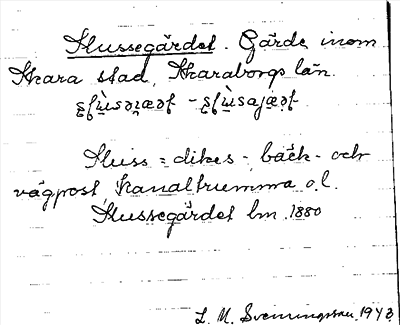 Slussegärdet. Gärde inom
Skara stad, Skaraborgs län.
Sluss = dikes-, bäck- och
vägpost, kanaltrumma o.l.
Slussegärdet lm. 1880
L. M. Svenungsson 1943